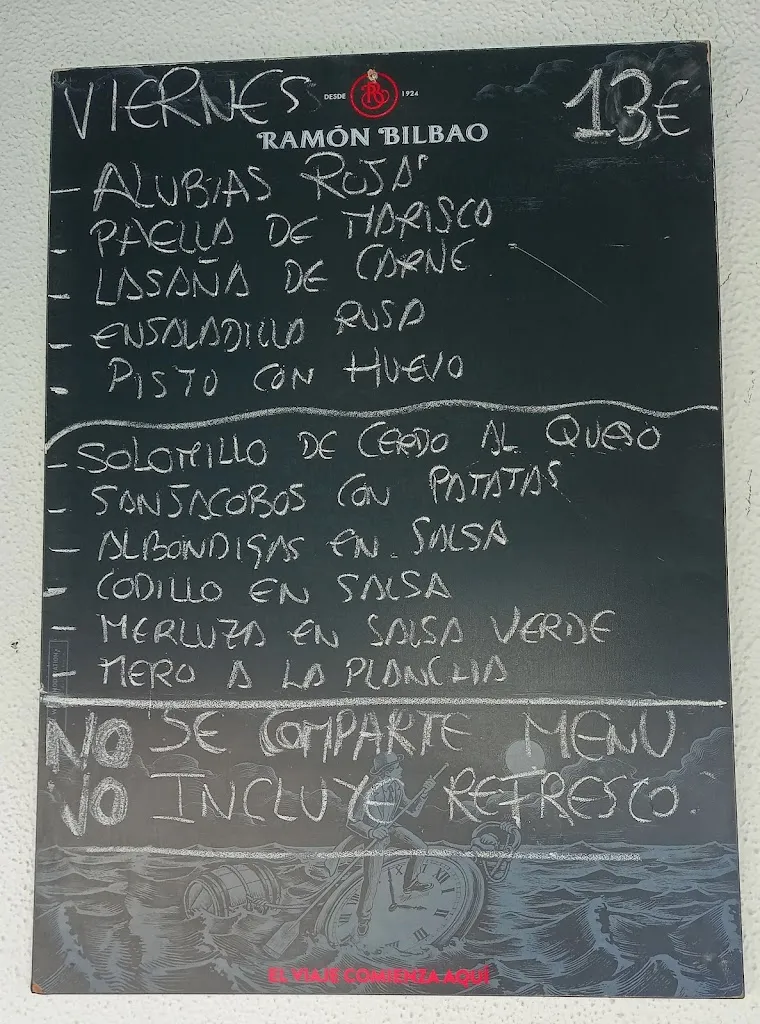 VIERNES
DESDE 1924
13€
RAMÓN BILBAO
- ALUBIAS ROJAS
- PAELLA DE MARISCO
- LASAÑA DE CARNE
- ENSALADILLA RUSA
- PISTO CON HUEVO
- SOLOMILLO DE CERDO AL QUESO
- SANJACOBOS CON PATATAS
- ALBONDIGAS EN SALSA
- CODILLO EN SALSA
- MERLUZA EN SALSA VERDE
- MERO A LA PLANCHA
NO SE COMPARTE MENU
NO INCLUYE REFRESCO
EL VIAJE COMIENZA AQUÍ